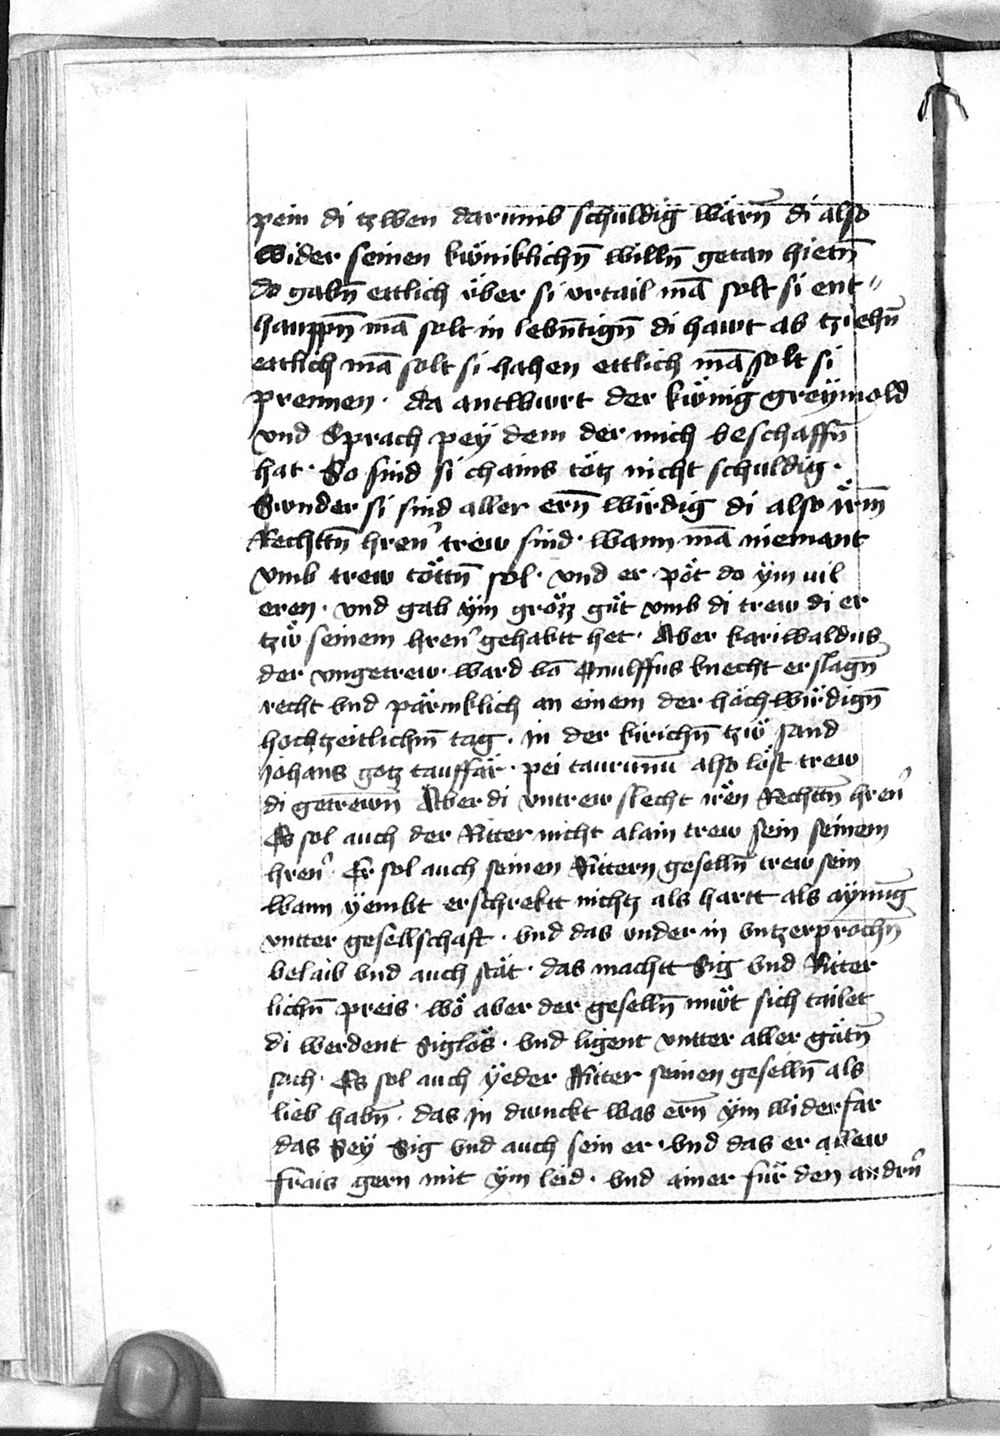 pein di tzwen darumb schuldig wärn̄ di also
wider seinen kwͤniklichn̄ willn̄ getan hietn̄
do gabn̄ ettlich vͤber si vrtail mā solt si ent⸗
haupp̄n mā solt in lebn̄tign̄ di hawt ab tziehn̄
ettlich mā solt si hahen ettlich mā solt si
prennen · da antwurt der kwͤnig greymold
vnd Sprach pey dem der mich beschaffn̄
hat · So sind si chains tötz nicht schuldig ·
Svnder si sind aller ern̄ wirdig di also irm̄
Rechttn̄ hren᷑ trew sind · wann mā niemant
vmb trew töttn̄ sol · vnd er pöt do ÿm uil
eren · vnd gab ÿm grözz gůt vmb di trew di er
tzwͤ seinem hren᷑ gehabtt het · Aber kariwaldus
der vngetrew · ward vā Onulffus knecht erslagn̄
recht vnd pärmklich an einem der höchwirdign̄
hochtzeitlichm̄ tag · in der kirichn̄ tzwͤ sand
iohans gotz tauffär · pei taurinnū also löst trew
di getrewn̄ Aber di vntrew slecht iren Rechttn̄ hren᷑
Es sol auch der Ritter nicht alain trew sein seinem
hren᷑ · Er sol auch seinen Rittern geselln̄ trew sein
wann ÿembt erschrektt nichtz als hartt als aynūg
vntter gesellschaft · vnd das vnder in vntzerprochn̄
belaib vnd auch stät · das machtt Sig vnd Ritter
lichn̄ preis · wo aber der geselln̄ mwͤt sich tailet
di werdent Siglös · vnd ligent vntter aller gůtn̄
sach · Es sol auch ÿeder Ritter seinen geselln̄ als
lieb habn̄ · das in dvnckt was ern̄ ÿm widerfar
das Sey Sig vnd auch sein er · vnd das er allew
frais gern mit ÿm leid · vnd ainer für den andrn᷑